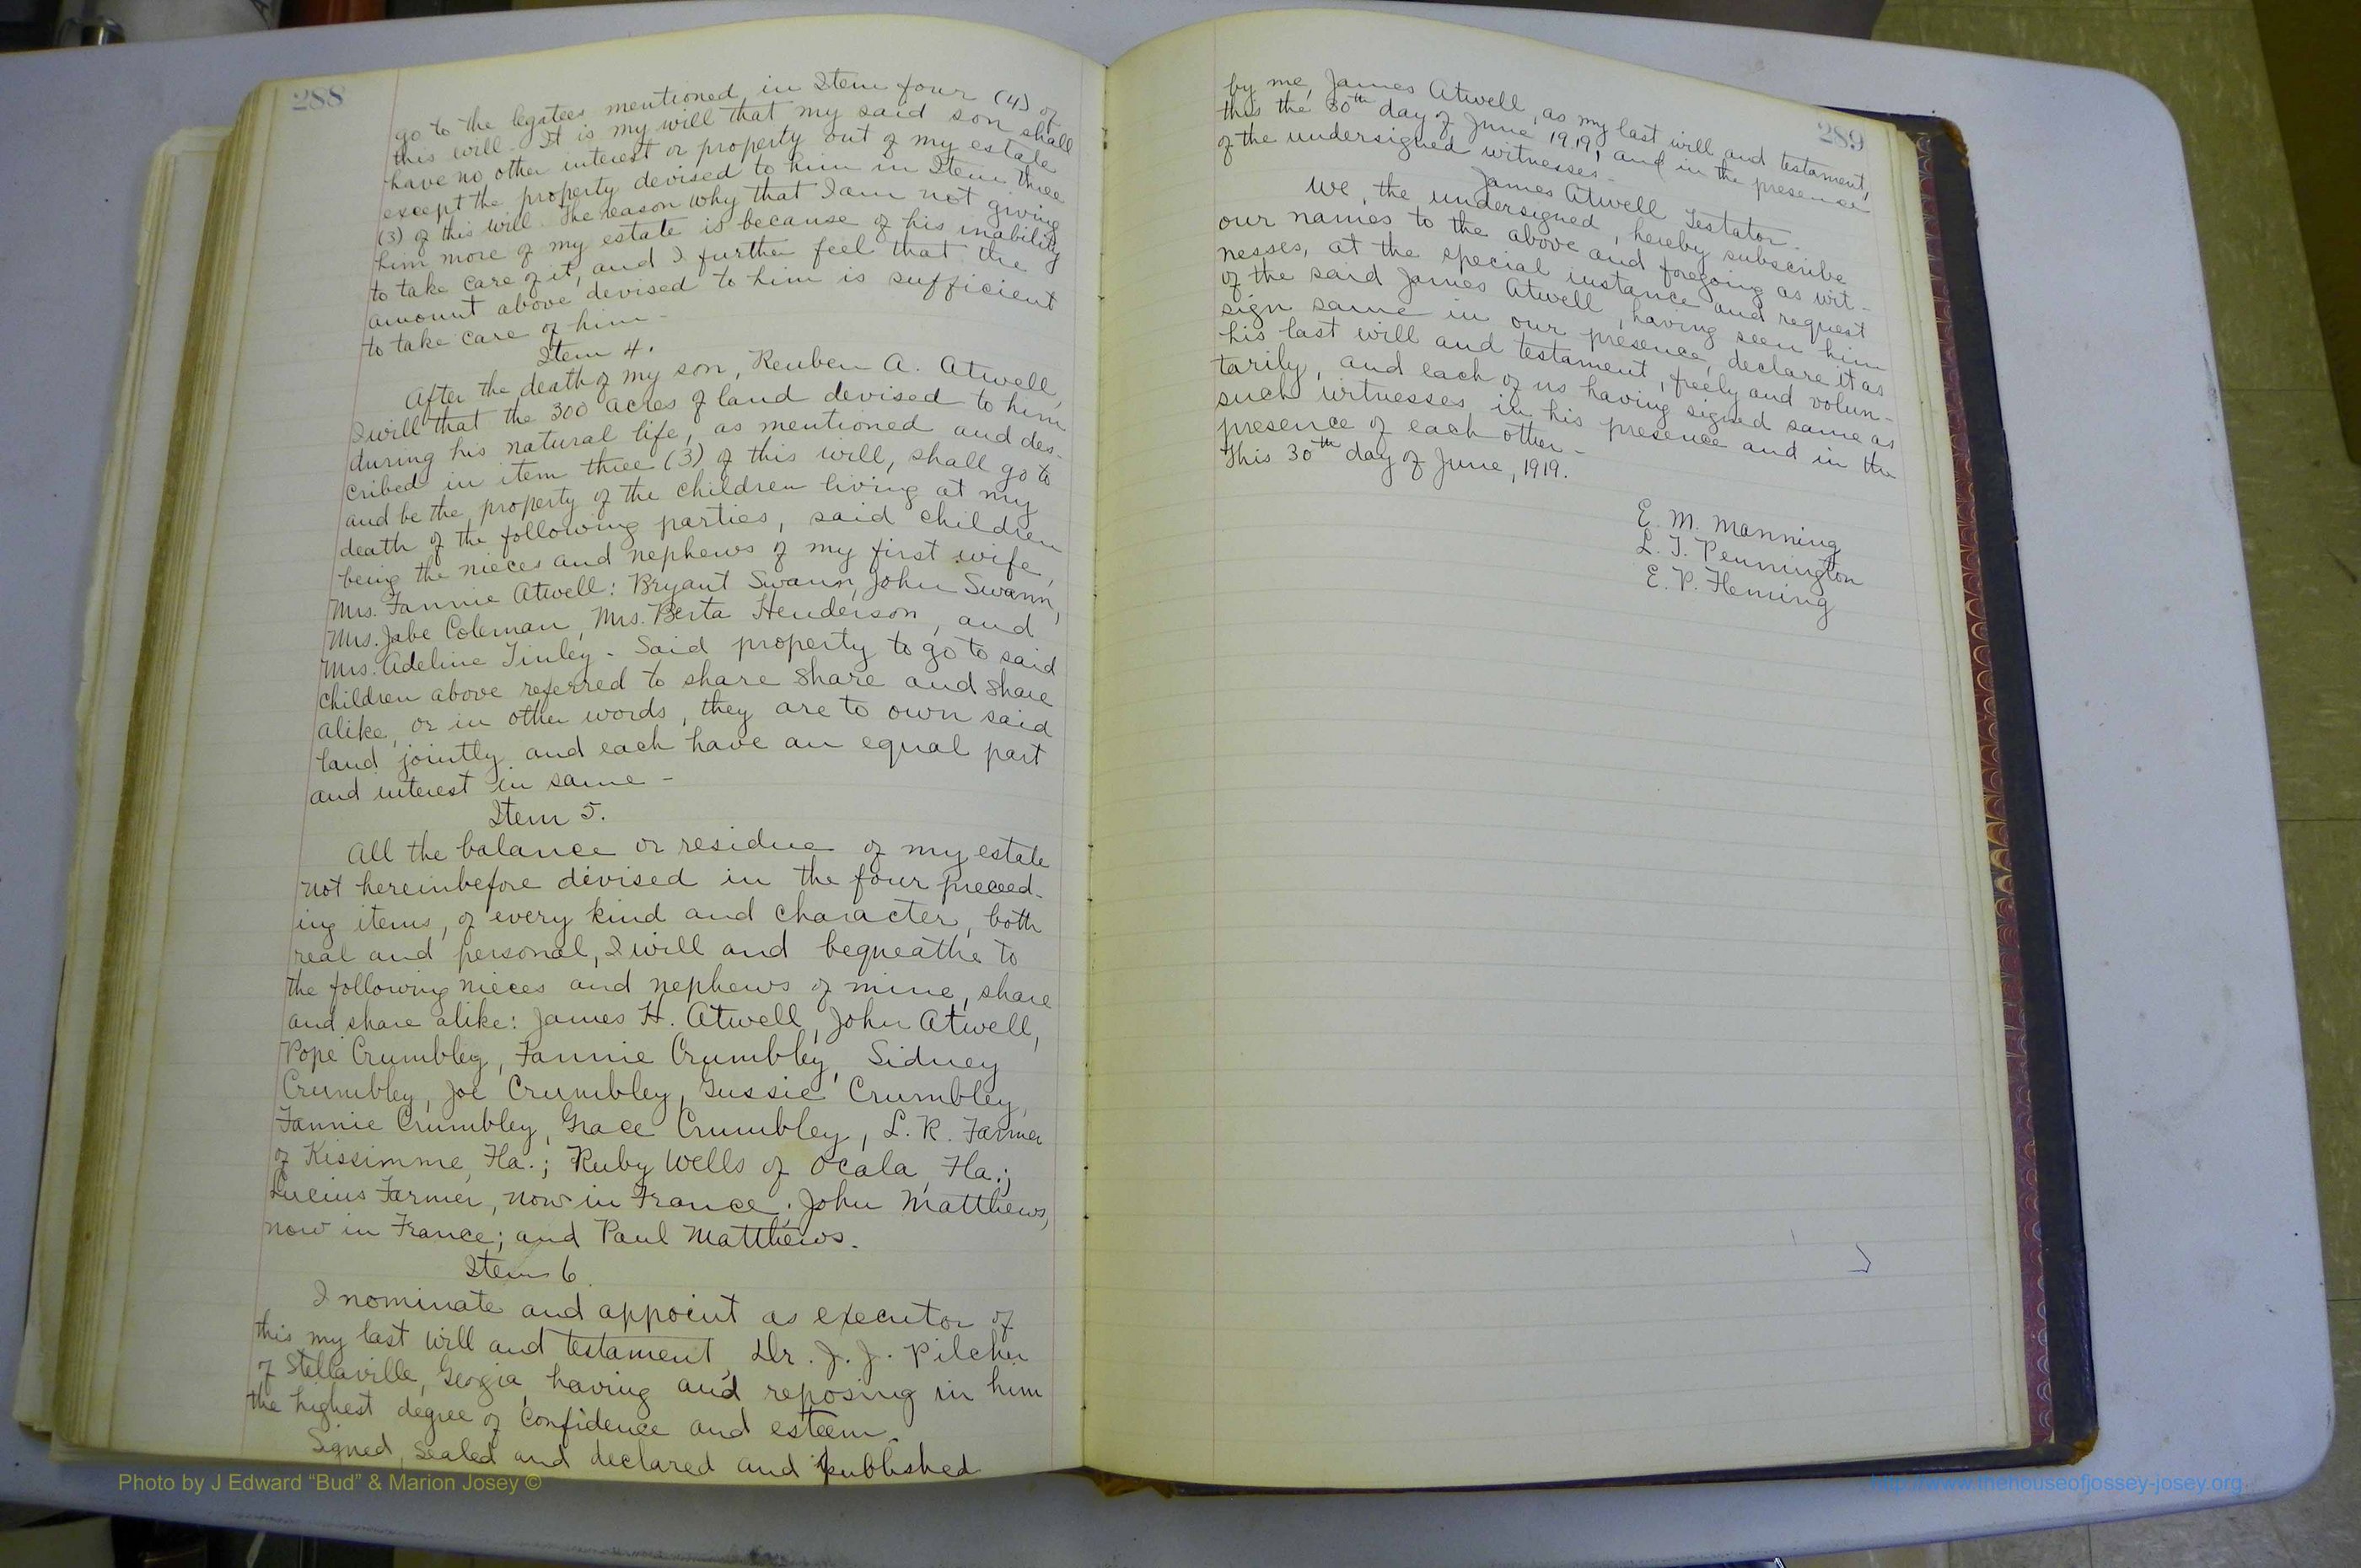 288
go to the legatees mentioned in Item four (4) of
this will. It is my will that my said son shall
have no other interest or property out of my estate
except the property devised to him in Item three
(3) of this will. The reason why that I am not giving
him more of my estate is because of his inability
to take care of it, and I further feel that the
amount above devised to him is sufficient
to take care of him -
Item 4.
After the death of my son, Reuben A. Atwell,
I will that the 300 acres of land devised to him
during his natural life, as mentioned and des-
cribed in item three (3) of this will, shall go to
and be the property of the children living at my
death of the following parties, said children
being the nieces and nephews of my first wife,
Mrs. Fannie Atwell: Bryant Swann, John Swann,
Mrs. Jabe Coleman, Mrs. Berta Henderson, and
Mrs. Adeline Tinley - Said property to go to said
children above referred to share share and share
alike, or in other words, they are to own said
land jointly and each have an equal part
and interest in same -
Item 5.
All the balance or residue of my estate
not hereinbefore devised in the four preceed-
ing items, of every kind and character, both
real and personal, I will and bequeathe to
the following nieces and nephews of mine, share
and share alike: James H. Atwell, John Atwell,
Pope Crumbley, Fannie Crumbley, Sidney
Crumbley, Joe Crumbley, Gussie Crumbley,
Fannie Crumbley, Grace Crumbley, L. R. Farmer
of Kissimme, Fla.; Ruby Wells of Ocala, Fla.;
Lucius Farmer, now in France; John Matthews,
now in France; and Paul Matthews.
Item 6.
I nominate and appoint as executor of
this my last will and testament, Dr. J. J. Pilcher
of Stellaville, Georgia, having and reposing in him
the highest degree of confidence and esteem.
Signed, sealed and declared and published
289
by me, James Atwell, as my last will and testament,
this the 30th day of June 1919, and in the presence
of the undersigned witnesses -
James Atwell Testator -
We, the undersigned, hereby subscribe
our names to the above and foregoing as wit-
nesses, at the special instance and request
of the said James Atwell, having seen him
sign same in our presence, declare it as
his last will and testament, freely and volun-
tarily, and each of us having signed same as
such witnesses in his presence and in the
presence of each other -
This 30th day of June, 1919.
E. M. Manning
L. T. Pennington
E. P. Fleming
Photo by J Edward “Bud” & Marion Josey ©
http://www.thehouseofjossey-josey.org